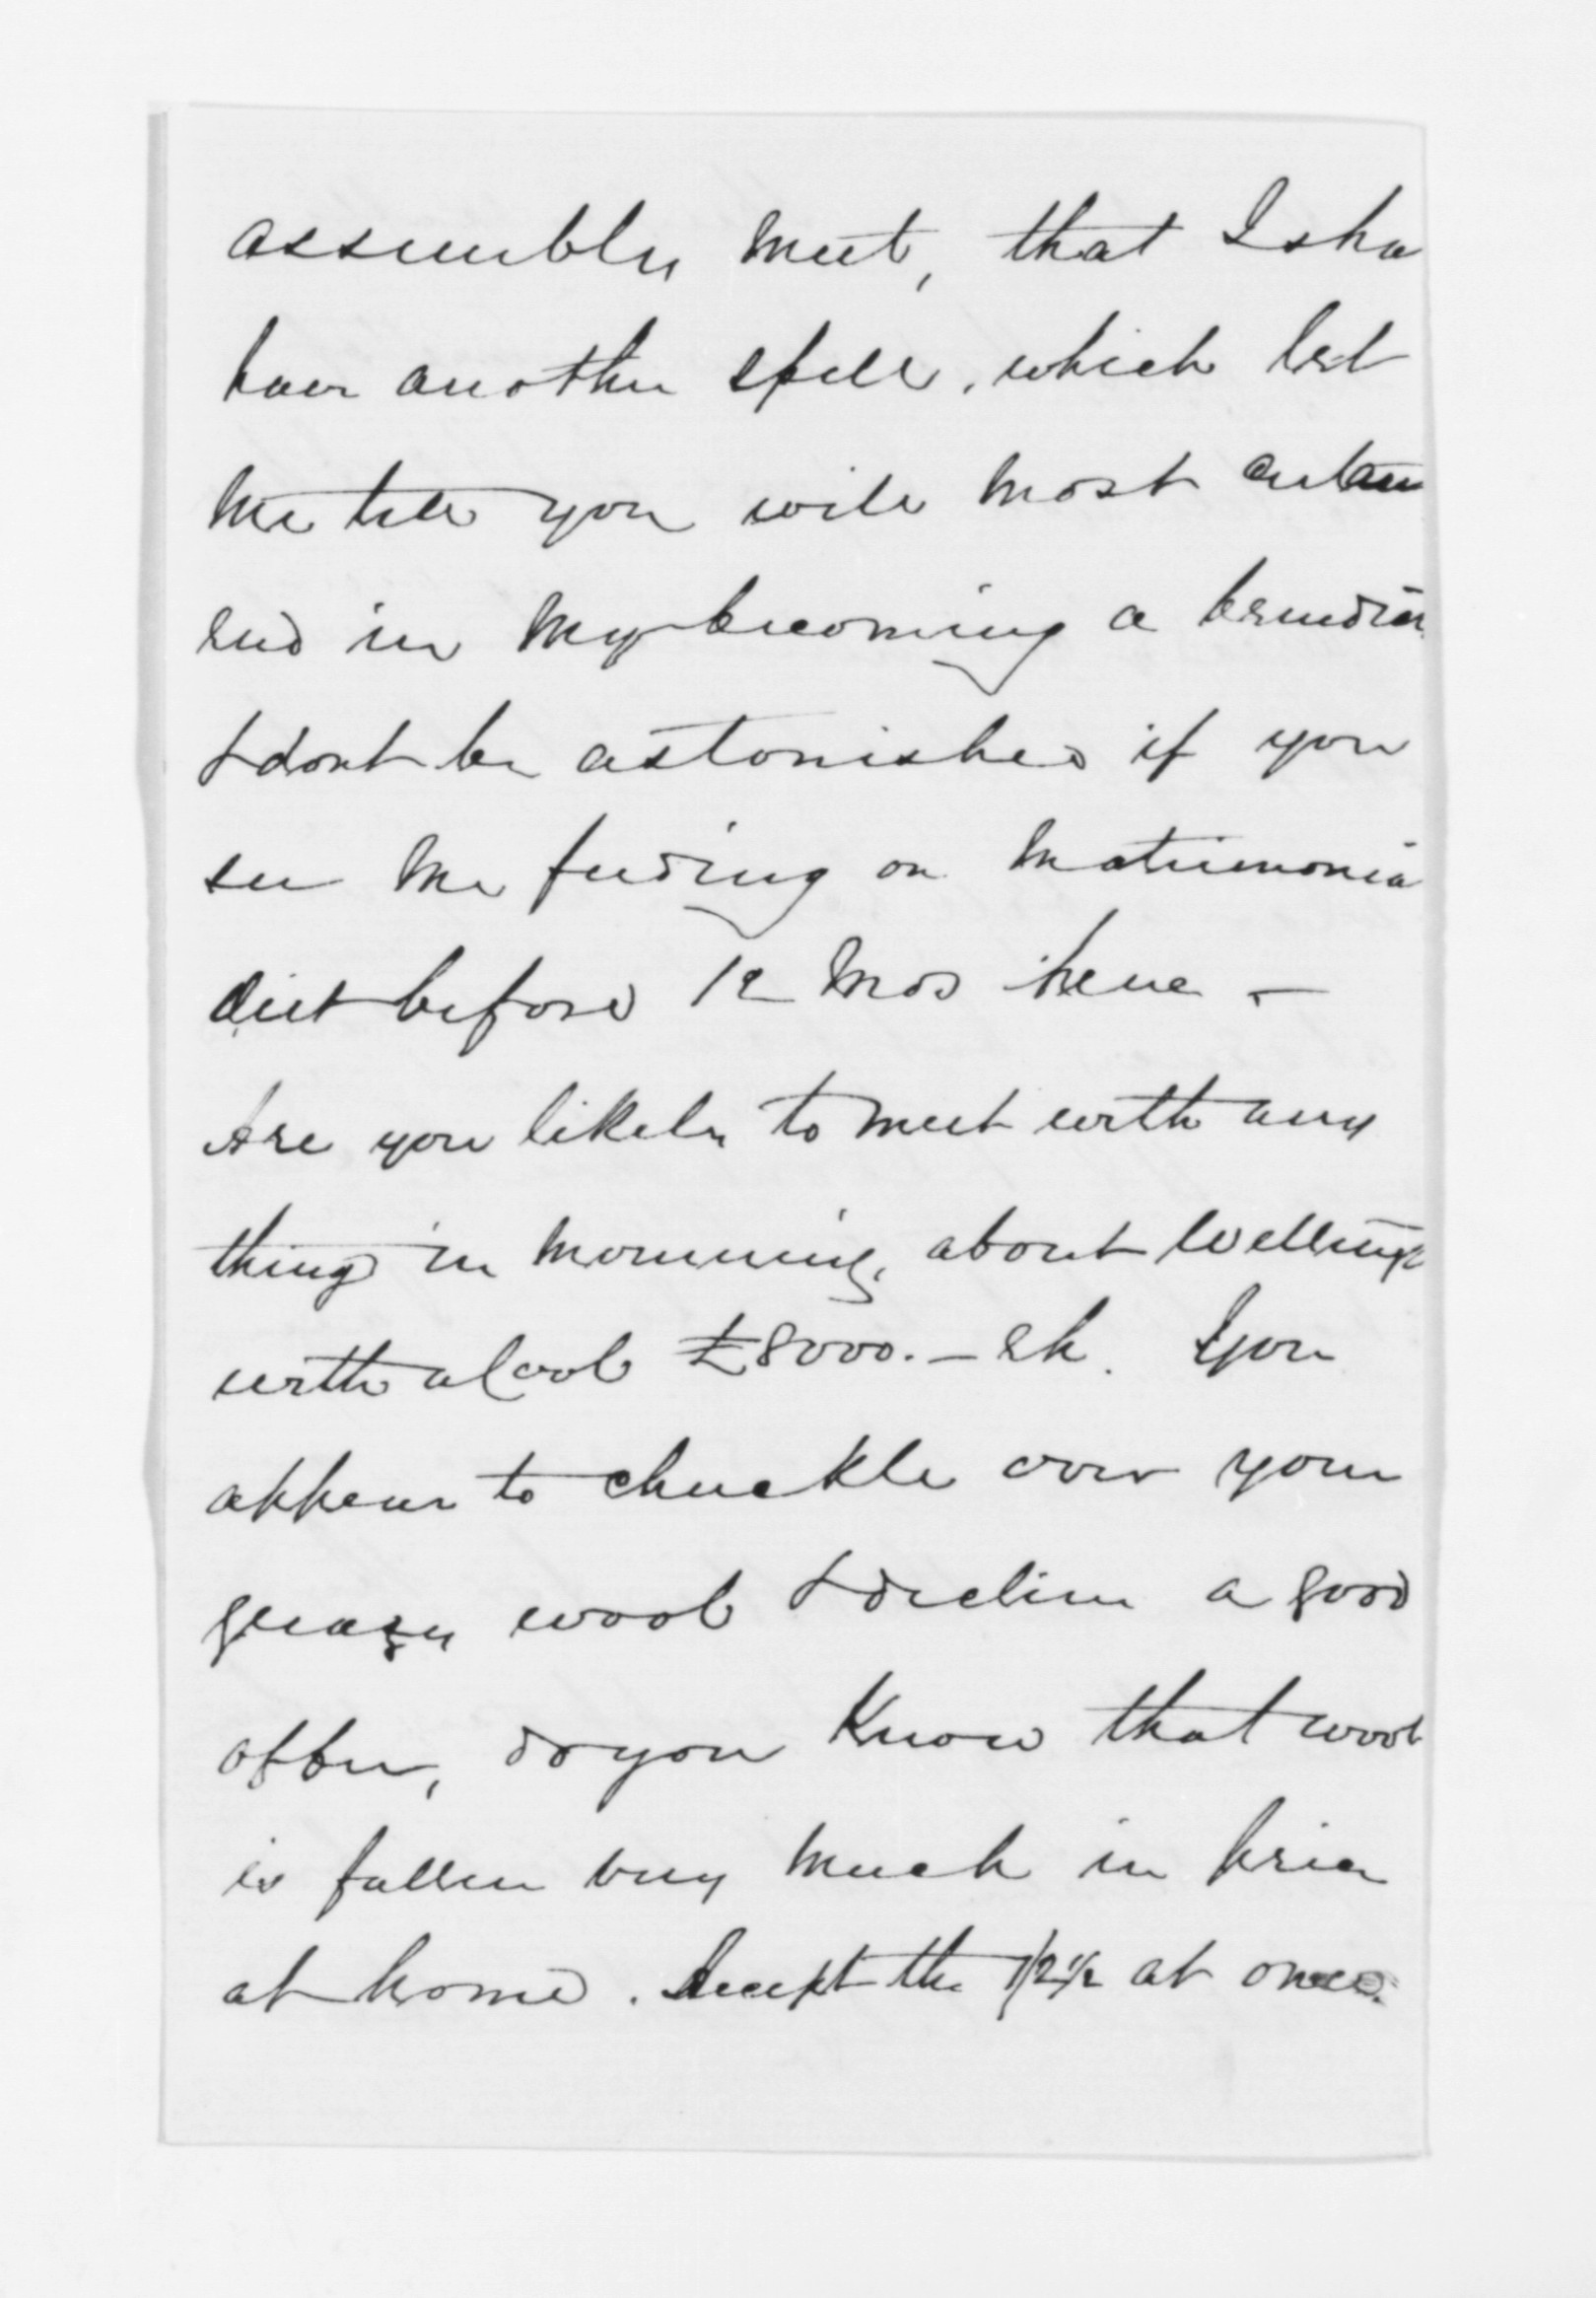 assembly meet, that I sha
have another spell, which let
me tell you will most certain
end in my becoming a benedict
& dont be astonished if you
see me feeding on matrimonia
diet before 12 mos hence –
Are you likely to meet with any
thing in mourning, about Welling
with a cool £8000. – eh. You
appear to chuckle over your
greasy wool & decline a good
offer, do you know that wool
is fallen very much in price
at home. Accept the 1/2½ at once.